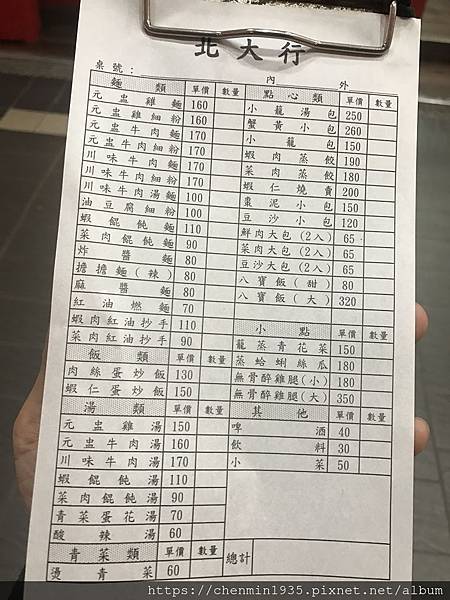 北大行
桌號：
內 外
麵類 單價 數量
元盅雞麵 160
元盅雞細粉 160
元盅牛肉麵 170
元盅牛肉細粉 170
川味牛肉麵 170
川味牛肉細粉 170
川味牛肉湯麵 100
油豆腐細粉 100
蝦餛飩麵 110
菜肉餛飩麵 90
炸醬麵 80
擔擔麵(辣) 80
麻醬麵 80
紅油燃麵 70
蝦肉紅油抄手 110
菜肉紅油抄手 90
飯類 單價 數量
肉絲蛋炒飯 130
蝦仁蛋炒飯 150
湯類 單價 數量
元盅雞湯 150
元盅牛肉湯 160
川味牛肉湯 170
蝦餛飩湯 110
菜肉餛飩湯 90
青菜蛋花湯 70
酸辣湯 60
青菜類 單價 數量
燙青菜 60
點心類 單價 數量
小籠湯包 250
蟹黃小包 260
小籠包 150
蝦肉蒸餃 190
菜肉蒸餃 180
蝦仁燒賣 200
棗泥小包 150
豆沙小包 120
鮮肉大包(2入) 65
菜肉大包(2入) 65
豆沙大包(2入) 65
八寶飯(甜) 80
八寶飯(大) 320
小點 單價 數量
籠蒸青花菜 150
蒸蛤蜊絲瓜 180
無骨醉雞腿(小) 180
無骨醉雞腿(大) 350
其他 單價 數量
啤酒 40
飲料 30
小菜 50
總計
https://chenmin1935.pixnet.net/album